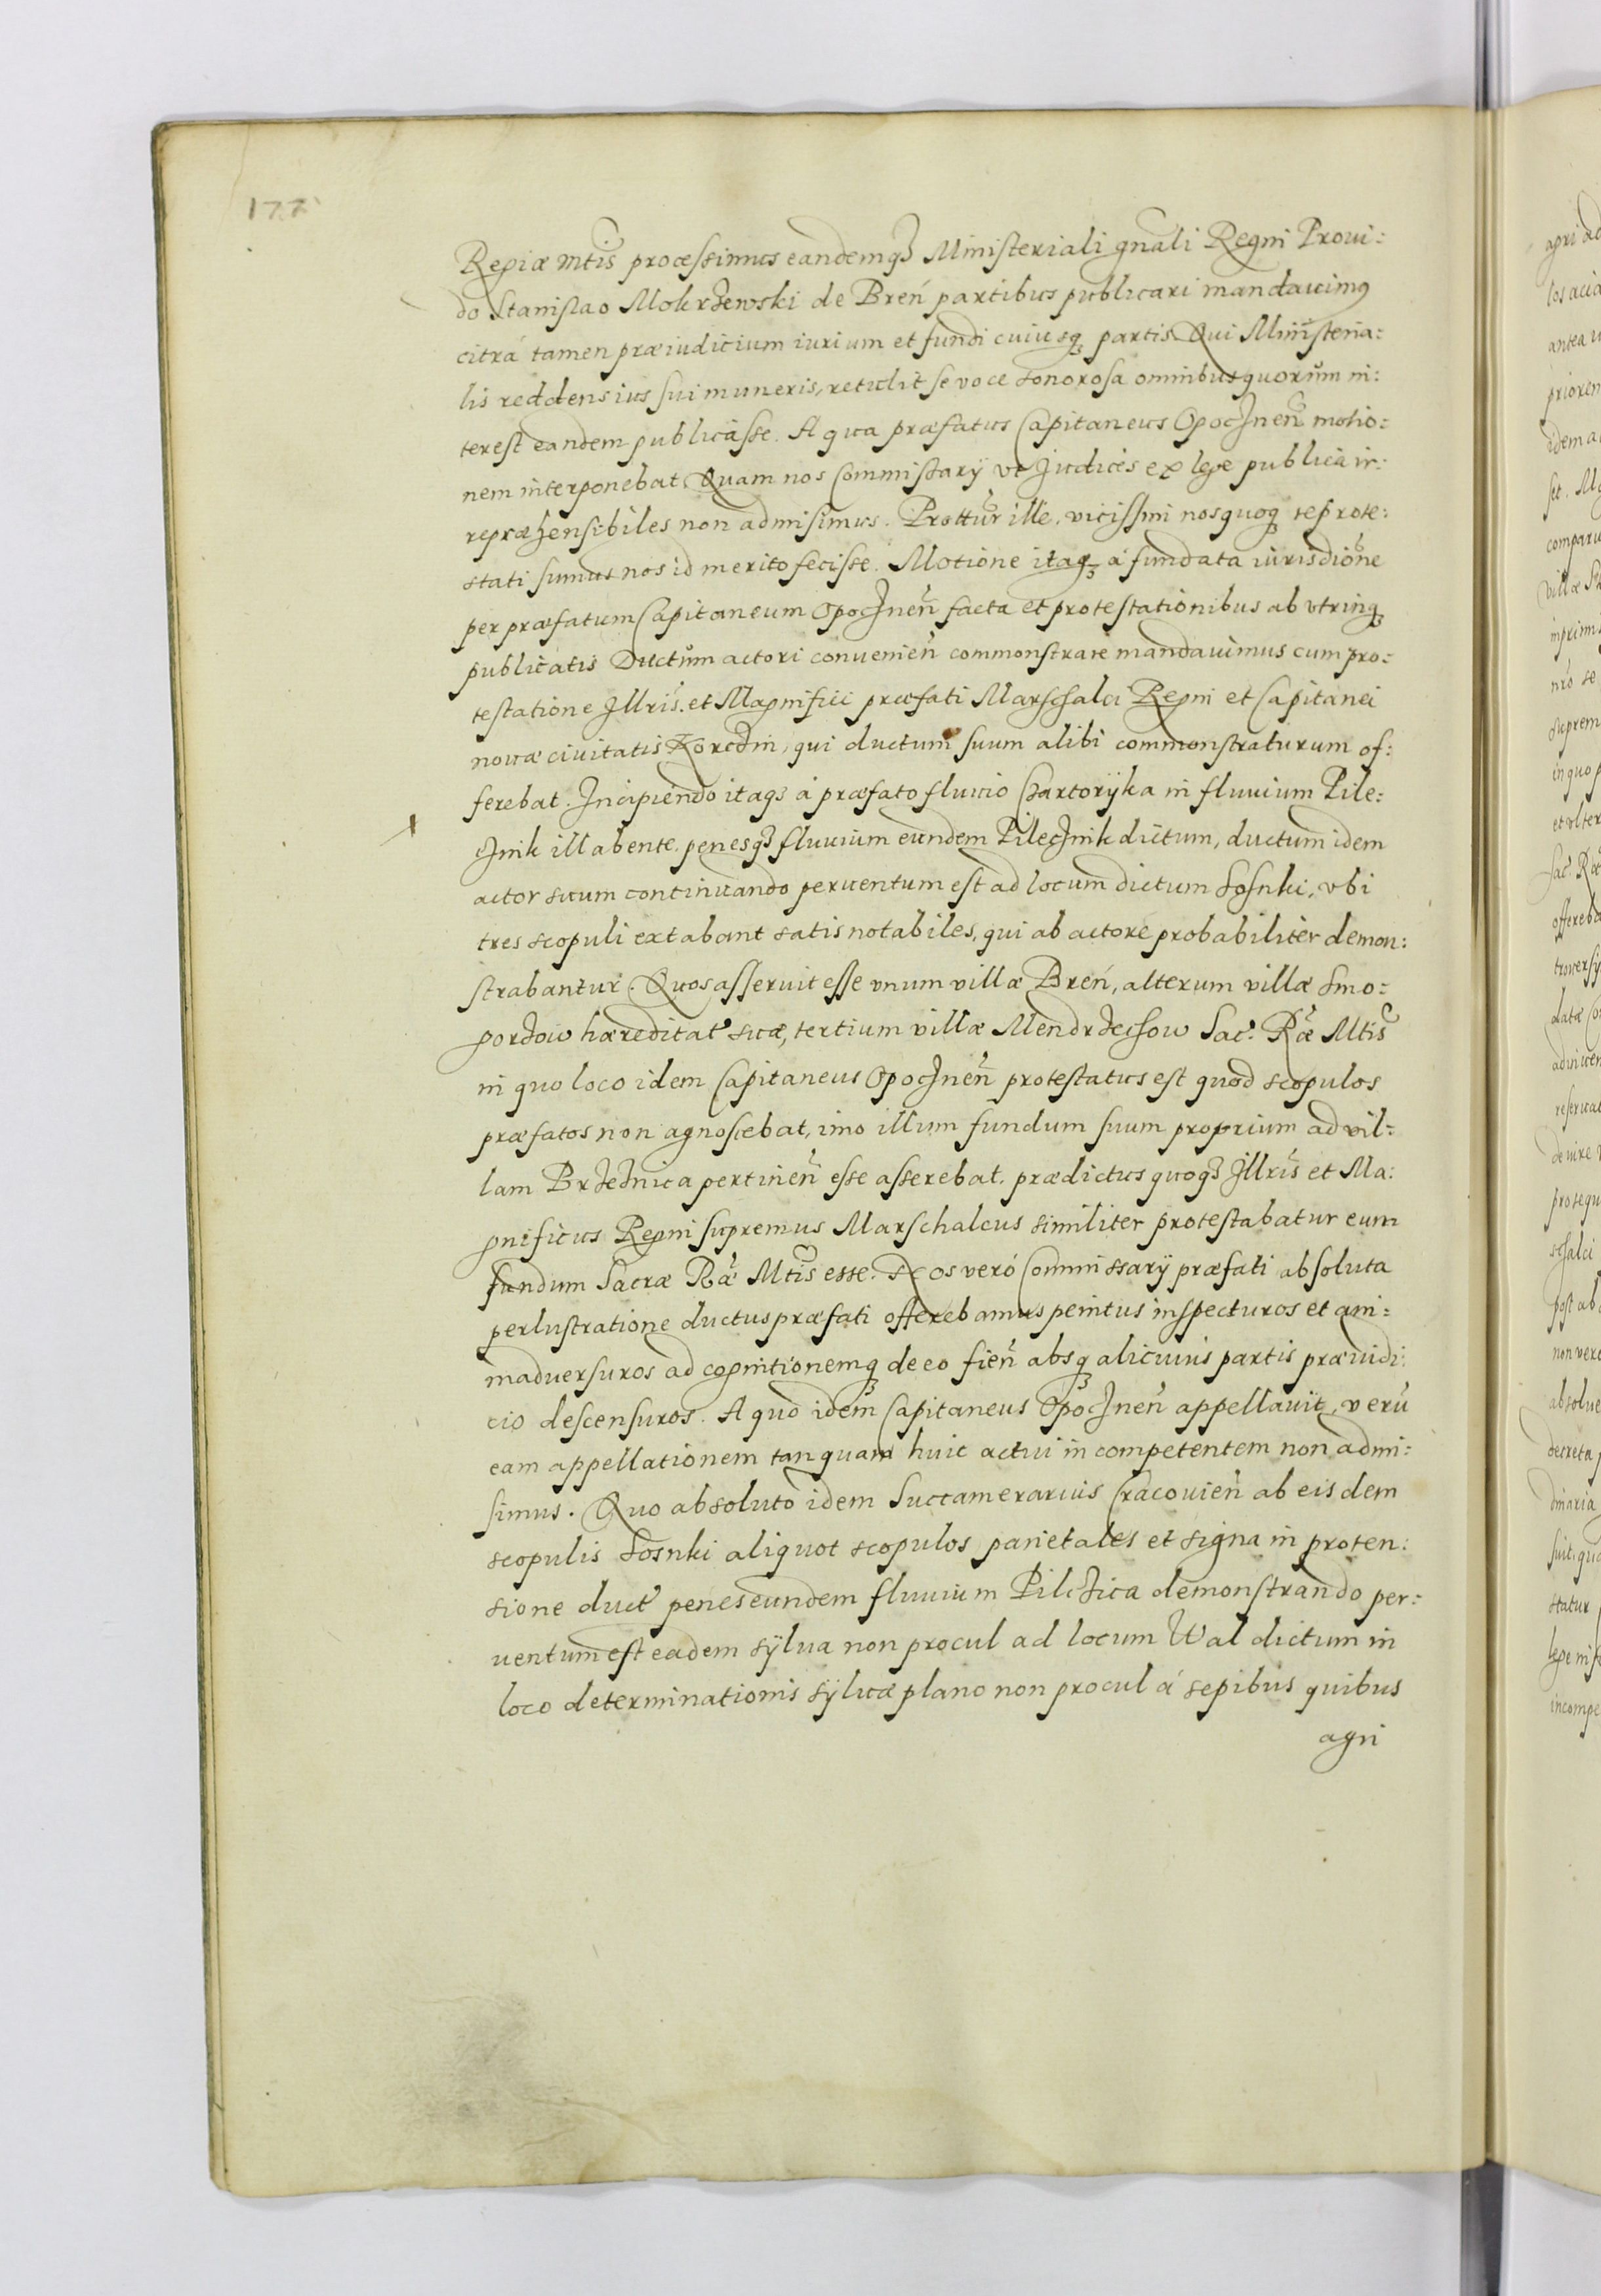 177
Regiæ Mtis processimus eandemqȝ Ministeriali gnali Regni Proui:
do Stanislao Mokrzewski de Breń partibus publicari mandauimus
citrá tamen præiudicium iurium et fundi cuiusqȝ partis. Qui Ministeria:
lis reddens ius sui muneris, retulit se voce sonorosa omnibus quorum in:
terest eandem publicasse. A qua præfatus Capitaneus Opocznen̄ motio:
nem interponebat. Quam nos Commissarÿ vt Iudices ex lege publica ir:
repræhensibiles non admisimus. Prottur ille, vicissim nos quoqȝ reprote:
stati sumus nos id merito fecisse. Motione itaqȝ á fundata iurisdione
per præfatum Capitaneum Opocznen̄ facta et protestationibus ab vtrinqȝ
publicatis Ductum actori conuenien̄ commonstrare mandauimus cum pro:
testatione Illris. et Magnifici præfati Marschalci Regni et Capitanei
nouæ ciuitatis Korczin, qui ductum suum alibi commonstraturum of:
ferebat. Incipiendo itaqȝ á præfato fluuio Chartorÿka in fluuium Pile:
cznik illabente. penesqȝ fluuium eundem Pilecznik dictum, ductum idem
actor suum continuando peruentum est ad locum dictum Sosnki, vbi
tres scopuli extabant satis notabiles, qui ab actore probabiliter demon:
strabantur. Quos asseruit esse vnum villæ Breń, alterum villæ Smo:
gorzow hæreditat suæ, tertium villæ Mendrzechow Sac. Ræ Mtis
in quo loco idem Capitaneus Opocznen̄ protestatus est quod scopulos
præfatos non agnoscebat, imo illum fundum suum proprium ad vil:
lam Brzeznica pertinen̄ esse asserebat. prædictus quoqȝ Illris et Ma:
gnificus Regni supremus Marschalcus similiter protestabatur eum
fundum Sacræ Ræ Mtis esse. Nos veró Commissarÿ præfati absoluta
perlustratione ductus præfati offerebamus penitus inspecturos et ani:
maduersuros ad cognitionemqȝ de eo fien̄ absqȝ alicuius partis præiudi:
cio descensuros. A quo idem Capitaneus Opocznen̄ appellauit, verū
eam appellationem tanquam huic actui incompetentem non admi:
simus. Quo absoluto idem Succamerarius Cracouien̄ ab eisdem
scopulis Sosnki aliquot scopulos parietales et signa in proten:
sione duct penes eundem fluuium Pilczica demonstrando per:
uentum est eadem sÿlua non procul ad locum Wal dictum in
loco determinationis sÿluæ plano non procul á sepibus quibus
agri